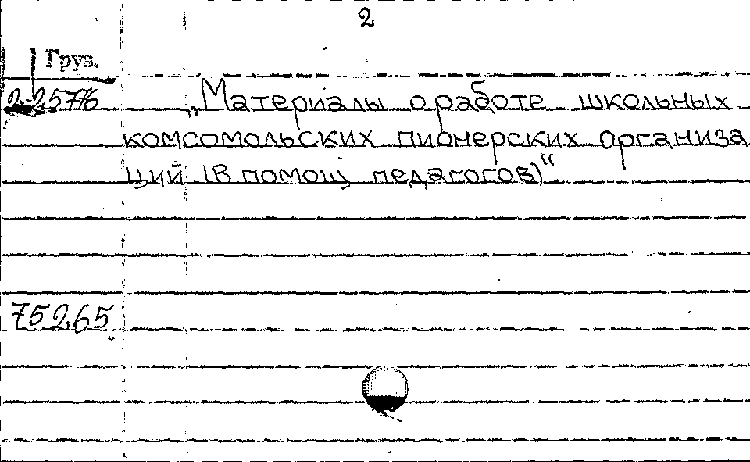 2
Груз.
2-2576
„Материалы о работе школьных
комсомольских пионерских организа
ций (в помощ педагогов)“
75265